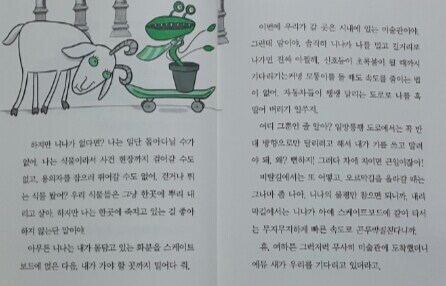 하지만 니나가 없다면? 나는 일단 돌아다닐 수가
없어. 나는 식물이라서 사건 현장까지 걸어갈 수도
없고, 용의자를 잡으러 뛰어갈 수도 없어. 걷거나 뛰
는 식물 봤어? 우리 식물들은 그냥 한곳에 뿌리 내
리고 살아. 하지만 나는 한곳에 죽치고 있는 걸 좋아
하지 않는단 말이야.
아무튼 니나는 내가 몸담고 있는 화분을 스케이트
보드에 얹은 다음, 내가 가야 할 곳까지 밀어다 줘.
이번에 우리가 갈 곳은 시내에 있는 미술관이야.
그런데 말이야, 솔직히 니나가 나를 밀고 길거리로
나가면 진짜 아찔해. 신호등이 초록불이 될 때까지
기다리기는커녕 모퉁이를 돌 때도 속도를 줄이는 법
이 없어. 자동차들이 쌩쌩 달리는 도로로 나를 확
밀어 버리기 일쑤지.
어디 그뿐인 줄 알아? 일방통행 도로에서는 꼭 반
대 방향으로만 달리려고 해서 내가 기를 쓰고 말려
야 돼. 왜? 왠하지! 그러다 차에 치이면 큰일이잖아!
비탈길에서는 또 어떻고. 오르막길을 올라갈 때는
그나마 좀 나아. 니나의 불평만 참으면 되니까. 내리
막길에서는 니나가 아예 스케이트보드에 같이 타서
는 무지무지하게 빠른 속도로 곤두박질친다니까.
휴, 여하튼 그럭저럭 무사히 미술관에 도착했더니
에듀 새가 우리를 기다리고 있더라고.